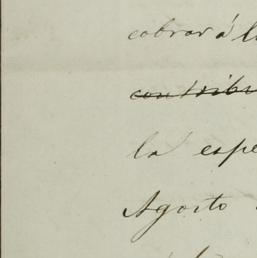 cobrar á l
contribu
la espe
Agosto